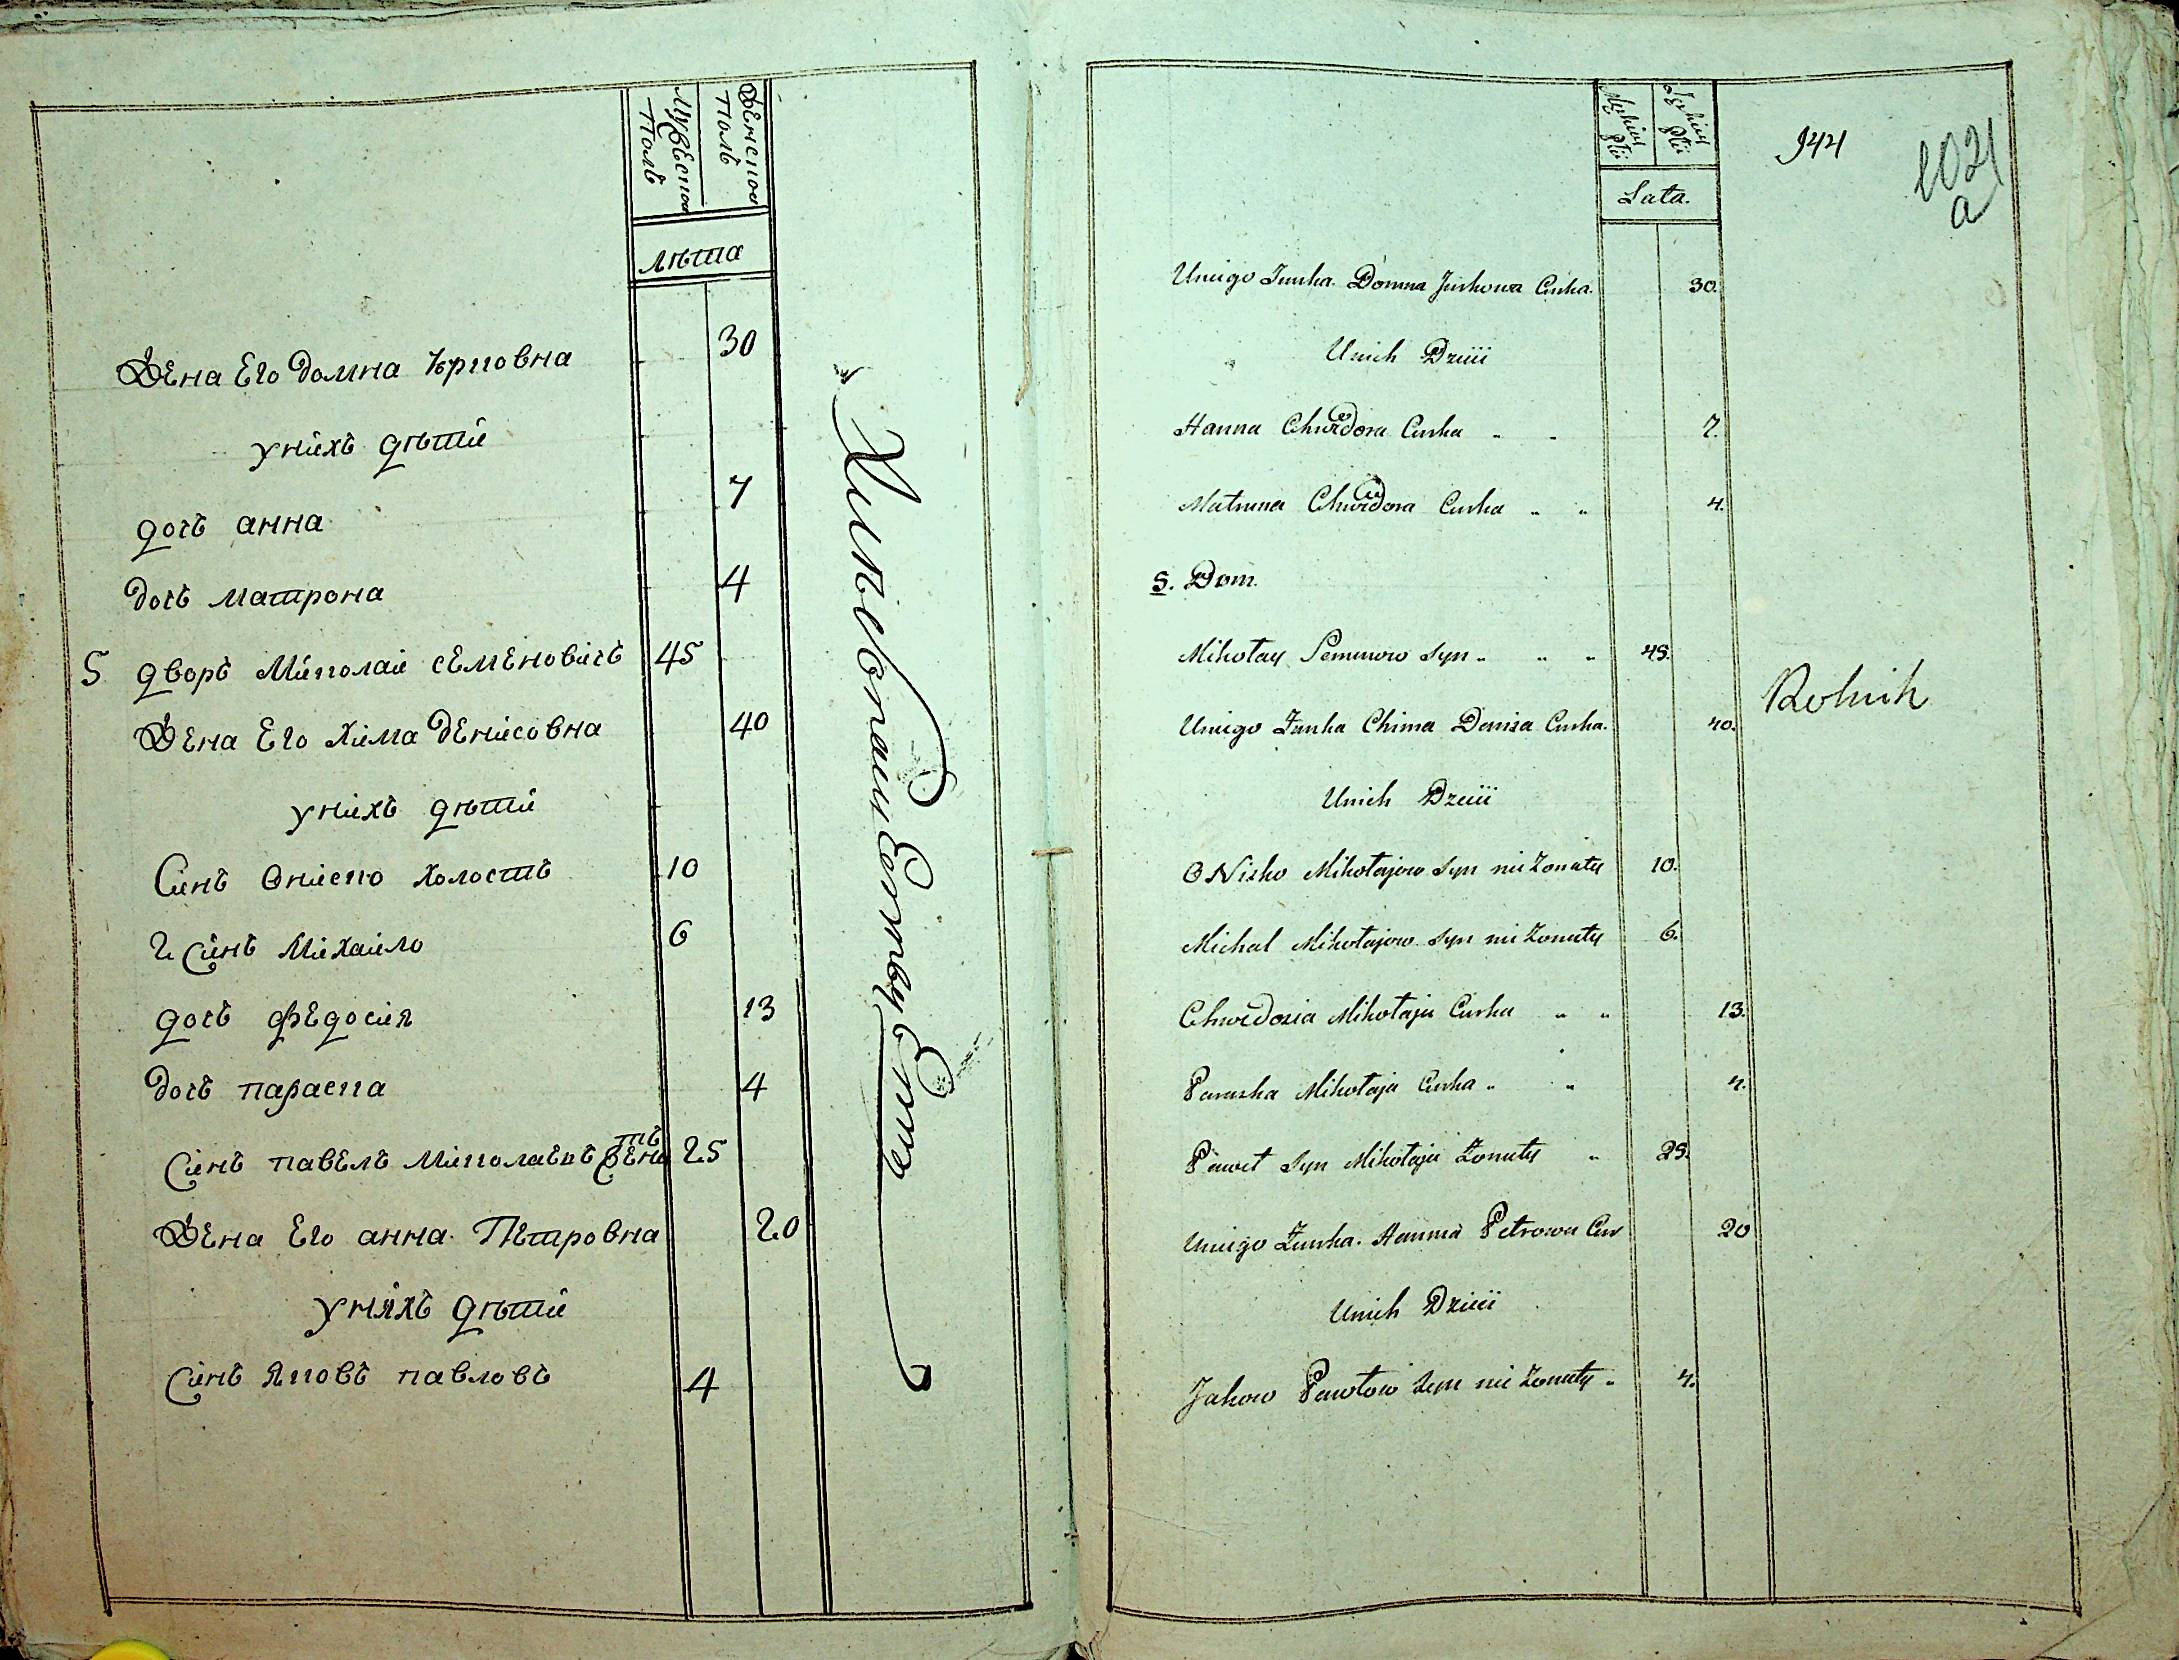 Женского Полꙋ
Мужеского Полꙋ
лѣта
Жена Его домна Юрковна 30
у нихъ дѣти
дочь анна 7
дочь матрона 4
5 дворъ Миколай семеновичъ 45
Жена Его Хима денисовна 40
у нихъ дѣти
Синъ Ониско холостъ 10
2 Синъ Михайло 6
дочь федосия 13
дочь параска 4
Синъ павелъ Миколаевъ женатъ 25
Жена Его анна Петровна 20
у нихъ дѣти
Синъ Яковъ павловъ 4
Męskiey Płci
Żeńskiey Płci
Lata.
944
1021
a
Uniego Żonka Domna Jurkowa Curka. 30.
Unich Dzieci
Hanna Chwedora Curka 7.
Matruna Chwedora Curka 4.
5. Dom.
Mikołay Semenow Syn 45.
Rolnik
Uniego Żonka Chima Denisa Curka. 40.
Unich Dzieci
ONisko Mikołajow Syn nieżonaty 10.
Michał Mikołajow Syn nieżonaty 6.
Chwedosia Mikołaja Curka 13.
Paraska Mikołaja Curka 4.
Paweł Syn Mikołaja Żonaty 25.
Uniego Żonka. Hanna Petrowa Cur 20
Unich Dzieci
Jakow Pawłow Syn nieżonaty 4.